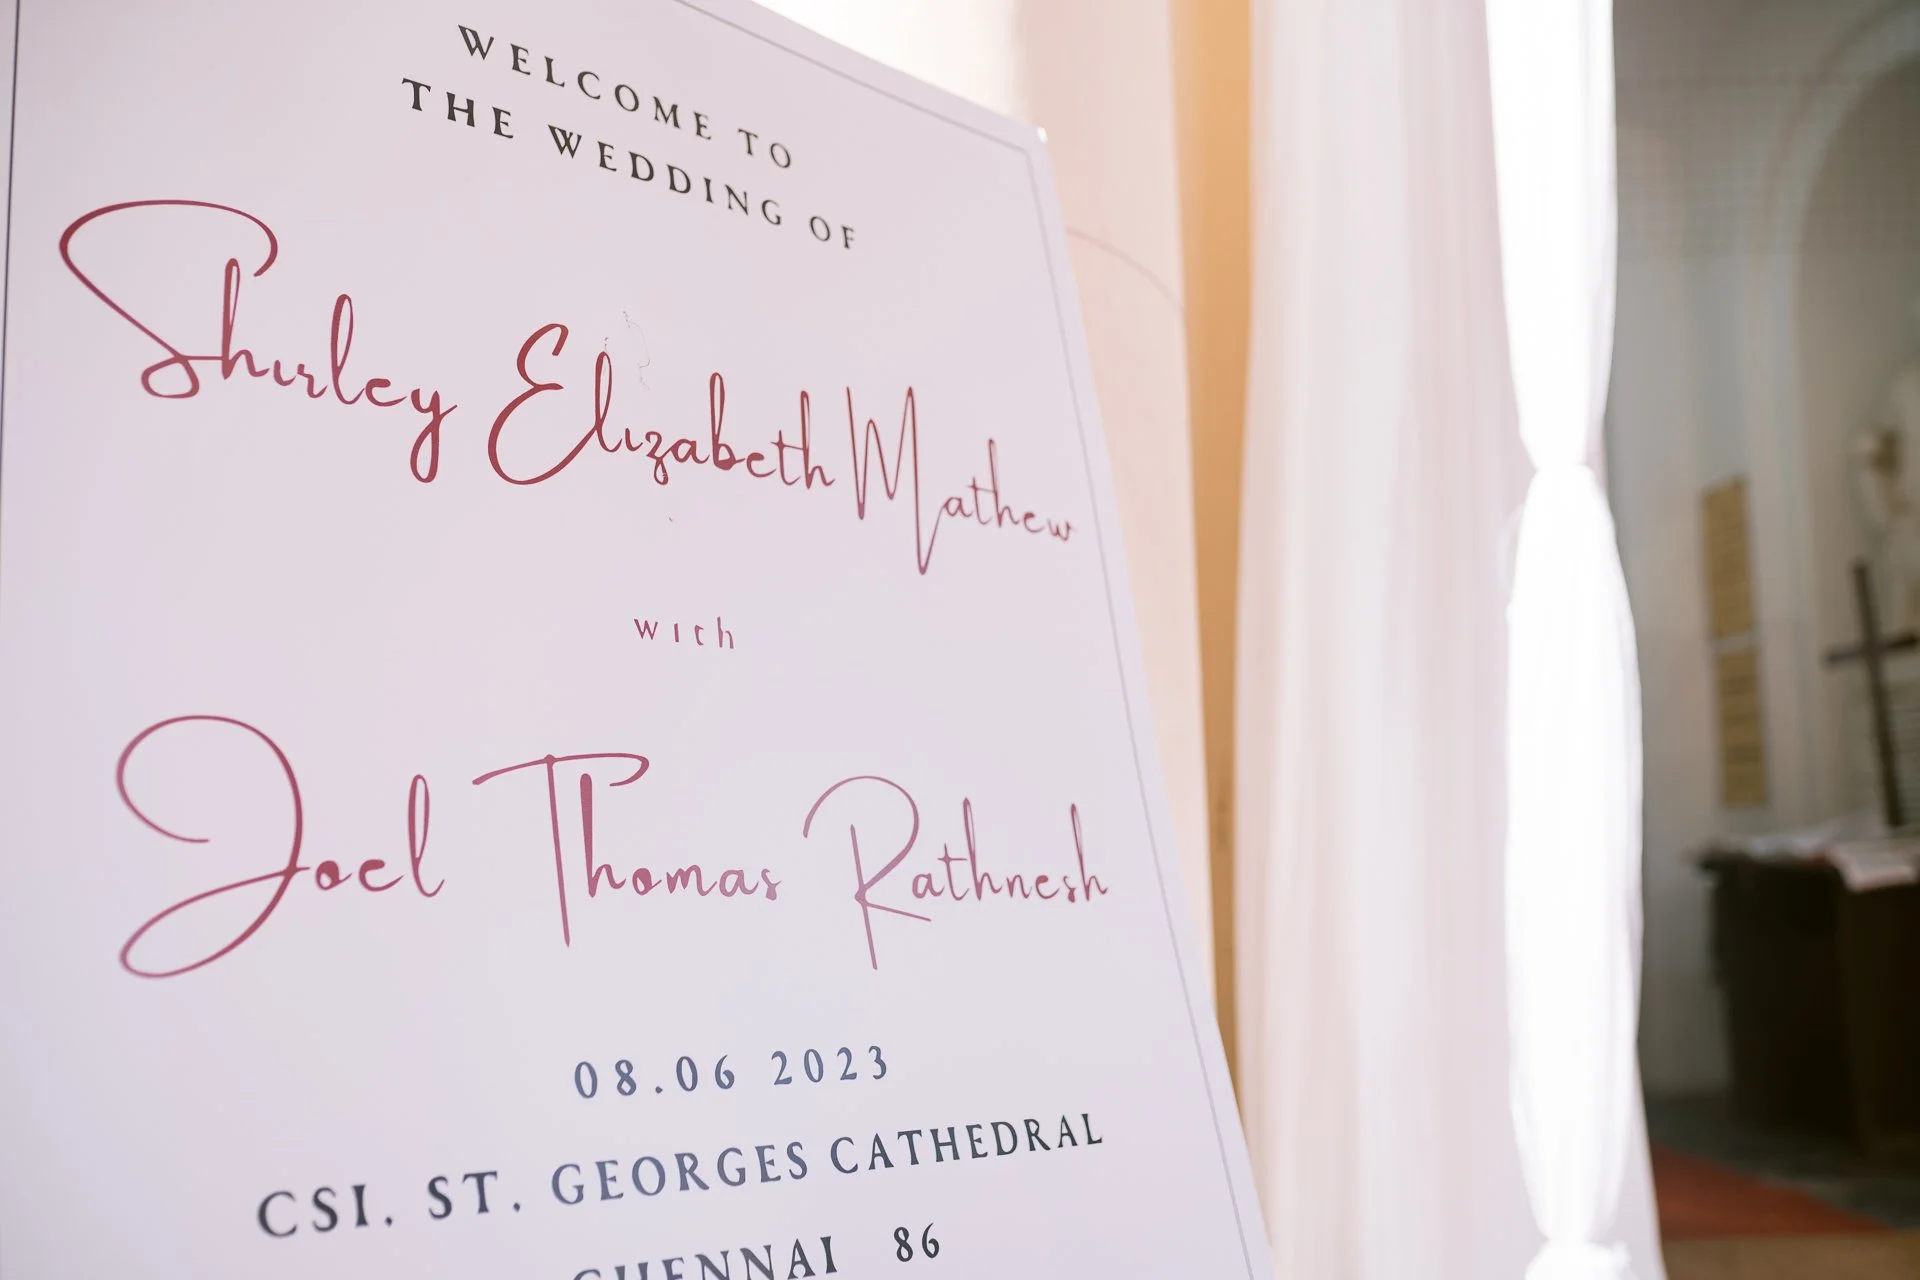 WELCOME TO
THE WEDDING OF
Shirley Elizabeth Mathew
with
Joel Thomas Rathnesh
08.06 2023
CSI. ST. GEORGES CATHEDRAL
CHENNAI 86